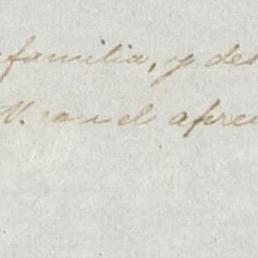 familia, y des
V. con el apre